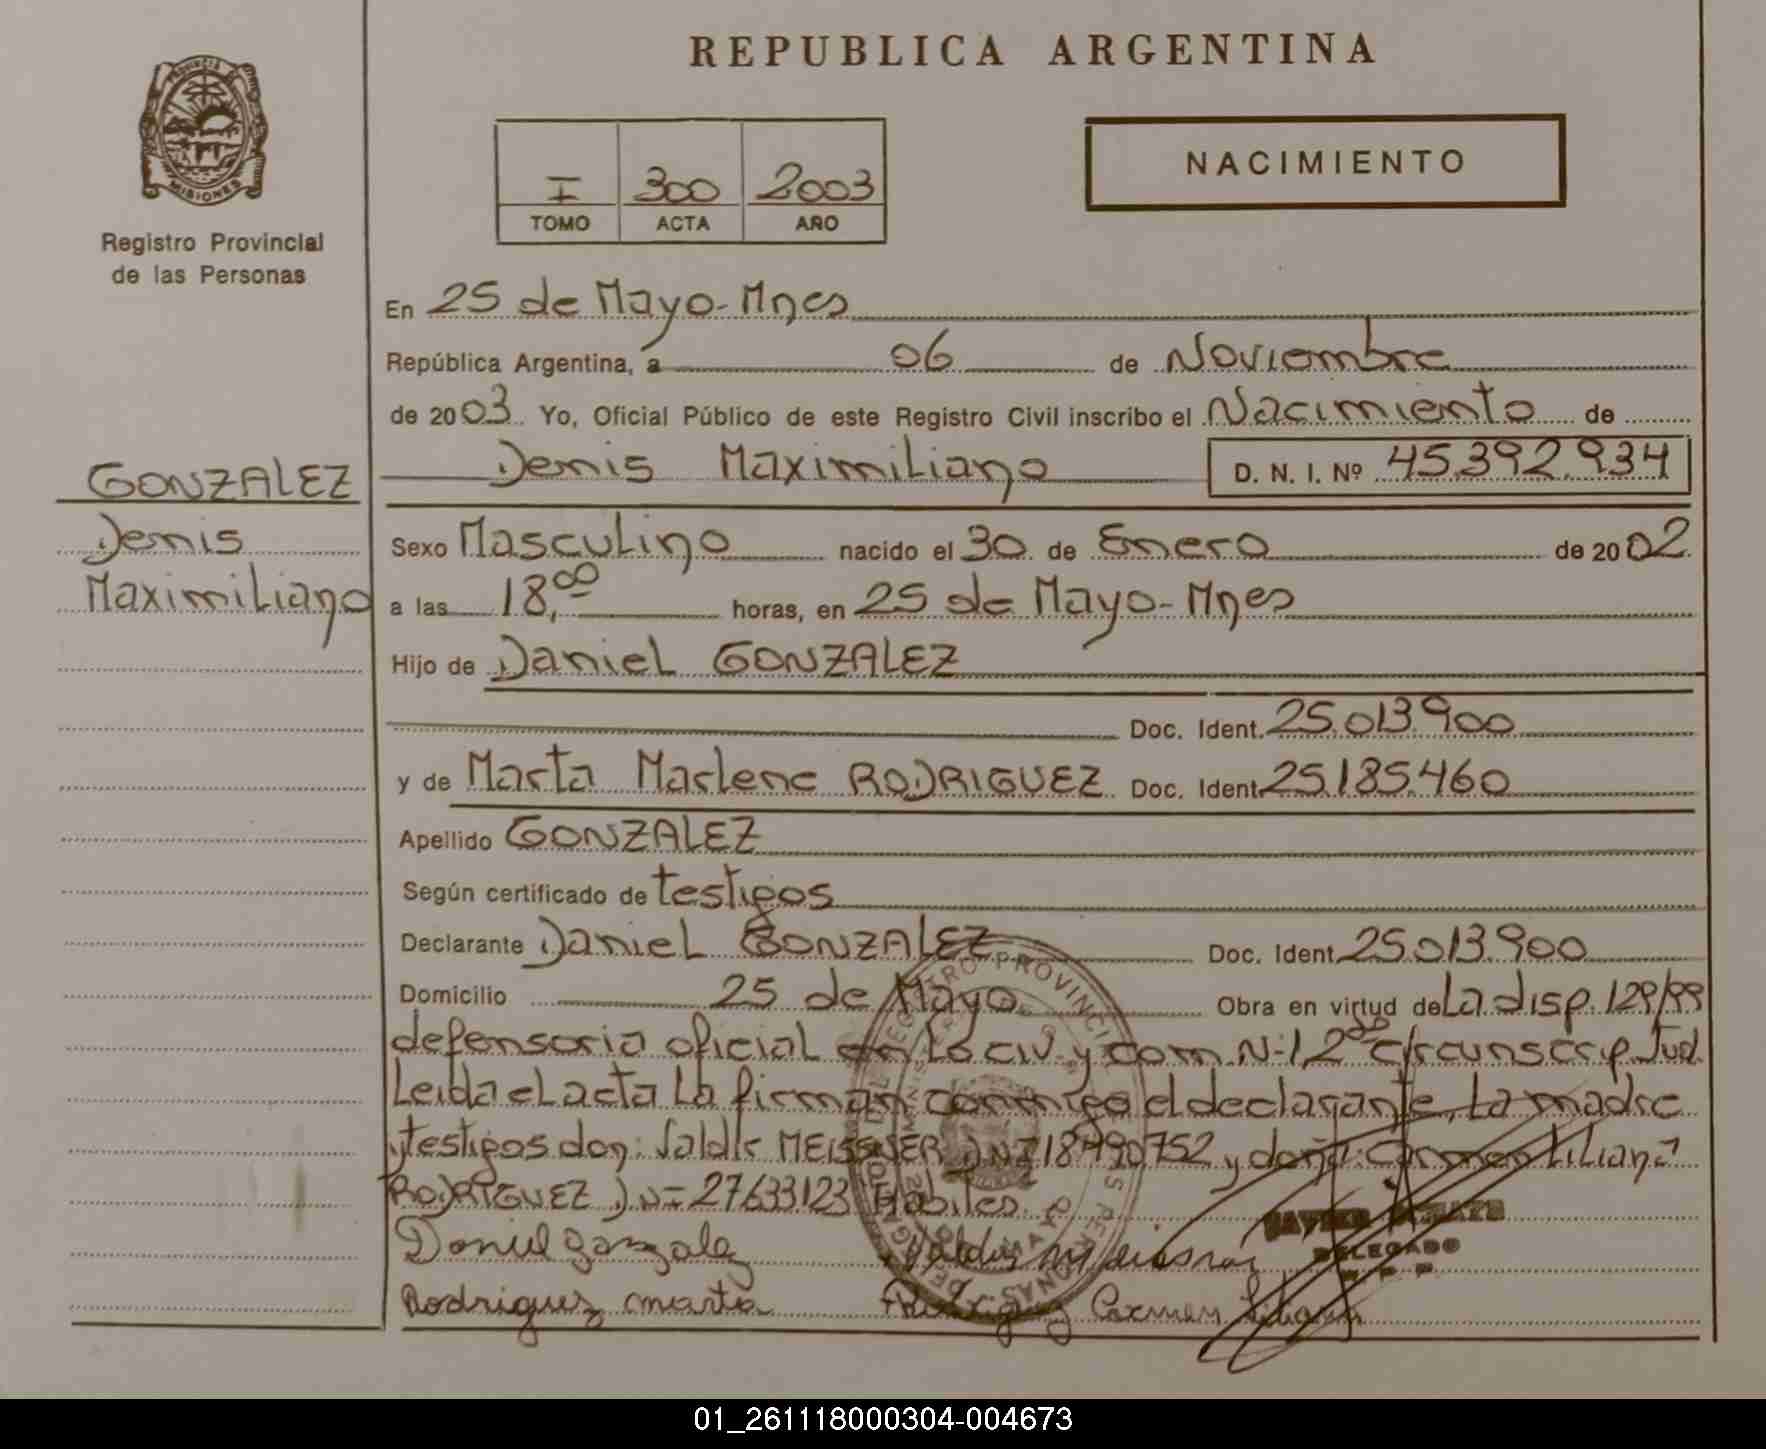 REPUBLICA ARGENTINA
MISIONES
Registro Provincial
de las Personas
I 300 2003
TOMO ACTA AÑO
NACIMIENTO
En 25 de Mayo-Mnes
República Argentina, a 06 de Noviembre
de 2003 Yo, Oficial Público de este Registro Civil inscribo el Nacimiento de
Denis Maximiliano D. N. I. Nº 45.392.934
GONZALEZ
Denis
Maximiliano
Sexo Masculino nacido el 30 de Enero de 2002
a las 18,00 horas, en 25 de Mayo-Mnes
Hijo de Daniel GONZALEZ
Doc. Ident. 25.013.900
y de Marta Marlene RODRIGUEZ Doc. Ident. 25.185.460
Apellido GONZALEZ
Según certificado de testigos
Declarante Daniel GONZALEZ Doc. Ident. 25.013.900
Domicilio 25 de Mayo Obra en virtud de La disp. 129/99
defensoria oficial en Lo civ. y com. N-1, 2da circunscrip. Jud.
Leida el acta La firman conmigo el declarante, La madre
y testigos don: Valdir MEISSNER DNI 18490752 y doña: Carmen Liliana
RODRIGUEZ DNI 27633123 Habiles.
DELEGADO
Daniel gonzalez Valdir meissner
Rodriguez marta Rodriguez Carmen Liliana
01_261118000304-004673